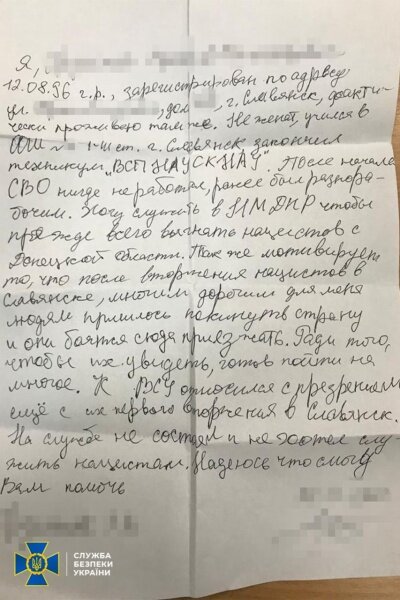 Я,
12.08.96 г.р., зарегистрирован по адресу
ул. , дом , г. Славянск, факти-
чески проживаю там же. Не женат, учился в
ОШ I-III ст. г. Славянск закончил
техникум „ВСП НАУ СК НАУ". После начала
СВО нигде не работал, ранее был разнора-
бочим. Хочу служить в НМ ДНР чтобы
прежде всего выгнать нацистов с
Донецкой области. Так же мотивирует
то, что после вторжения нацистов в
Славянске, многим дорогим для меня
людям пришлось покинуть страну
и они боятся сюда приезжать. Ради того,
чтобы их увидеть, готов пойти на
многое. К ВСУ относился с презрением
ещё с их первого вторжения в Славянск.
На службе не состоял и не хотел слу-
жить нацистам. Надеюсь что смогу
Вам помочь
СЛУЖБА
БЕЗПЕКИ
УКРАЇНИ